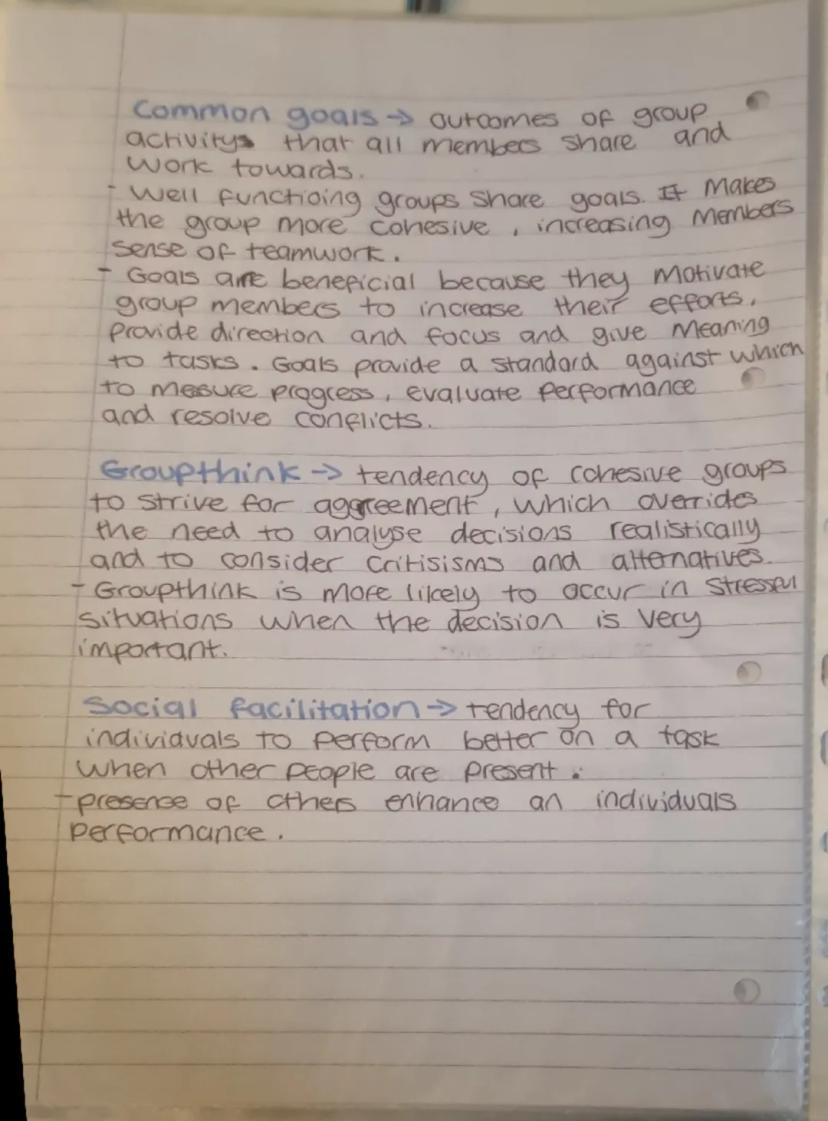 Common goals → outcomes of group
activitys that all members share and
work towards.
- Well functioing groups share goals. It makes
the group more cohesive, increasing members
sense of teamwork.
- Goals are beneficial because they motivate
group members to increase their efforts,
provide direction and focus and give meaning
to tasks. Goals provide a standard against which
to mesure progress, evaluate performance
and resolve conflicts.
Groupthink → tendency of cohesive groups
to strive for aggreement, which overrides
the need to analyse decisions realistically
and to consider critisisms and alternatives.
- Groupthink is more likely to occur in stressful
situations when the decision is very
important.
Social facilitation → tendency for
individuals to perform better on a task
when other people are present.
- presence of others enhance an individuals
performance.